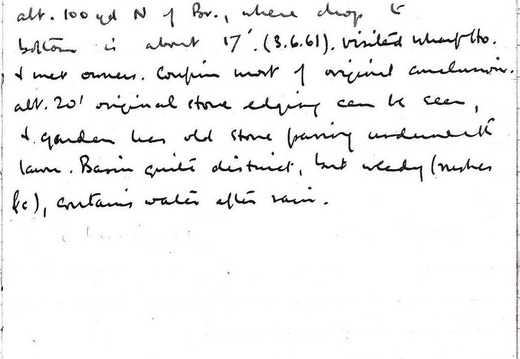 alt. 100 yd N of Br., where drop to
bottom is about 17'. (3.6.61). Visited Wharf Ho.
& met owners. Confirm most of original conclusion.
alt. 20' original stone edging can be seen,
& garden has old stone paving underneath
lawn. Basin quite distinct, but weedy (rushes
&c), contains water after rain.